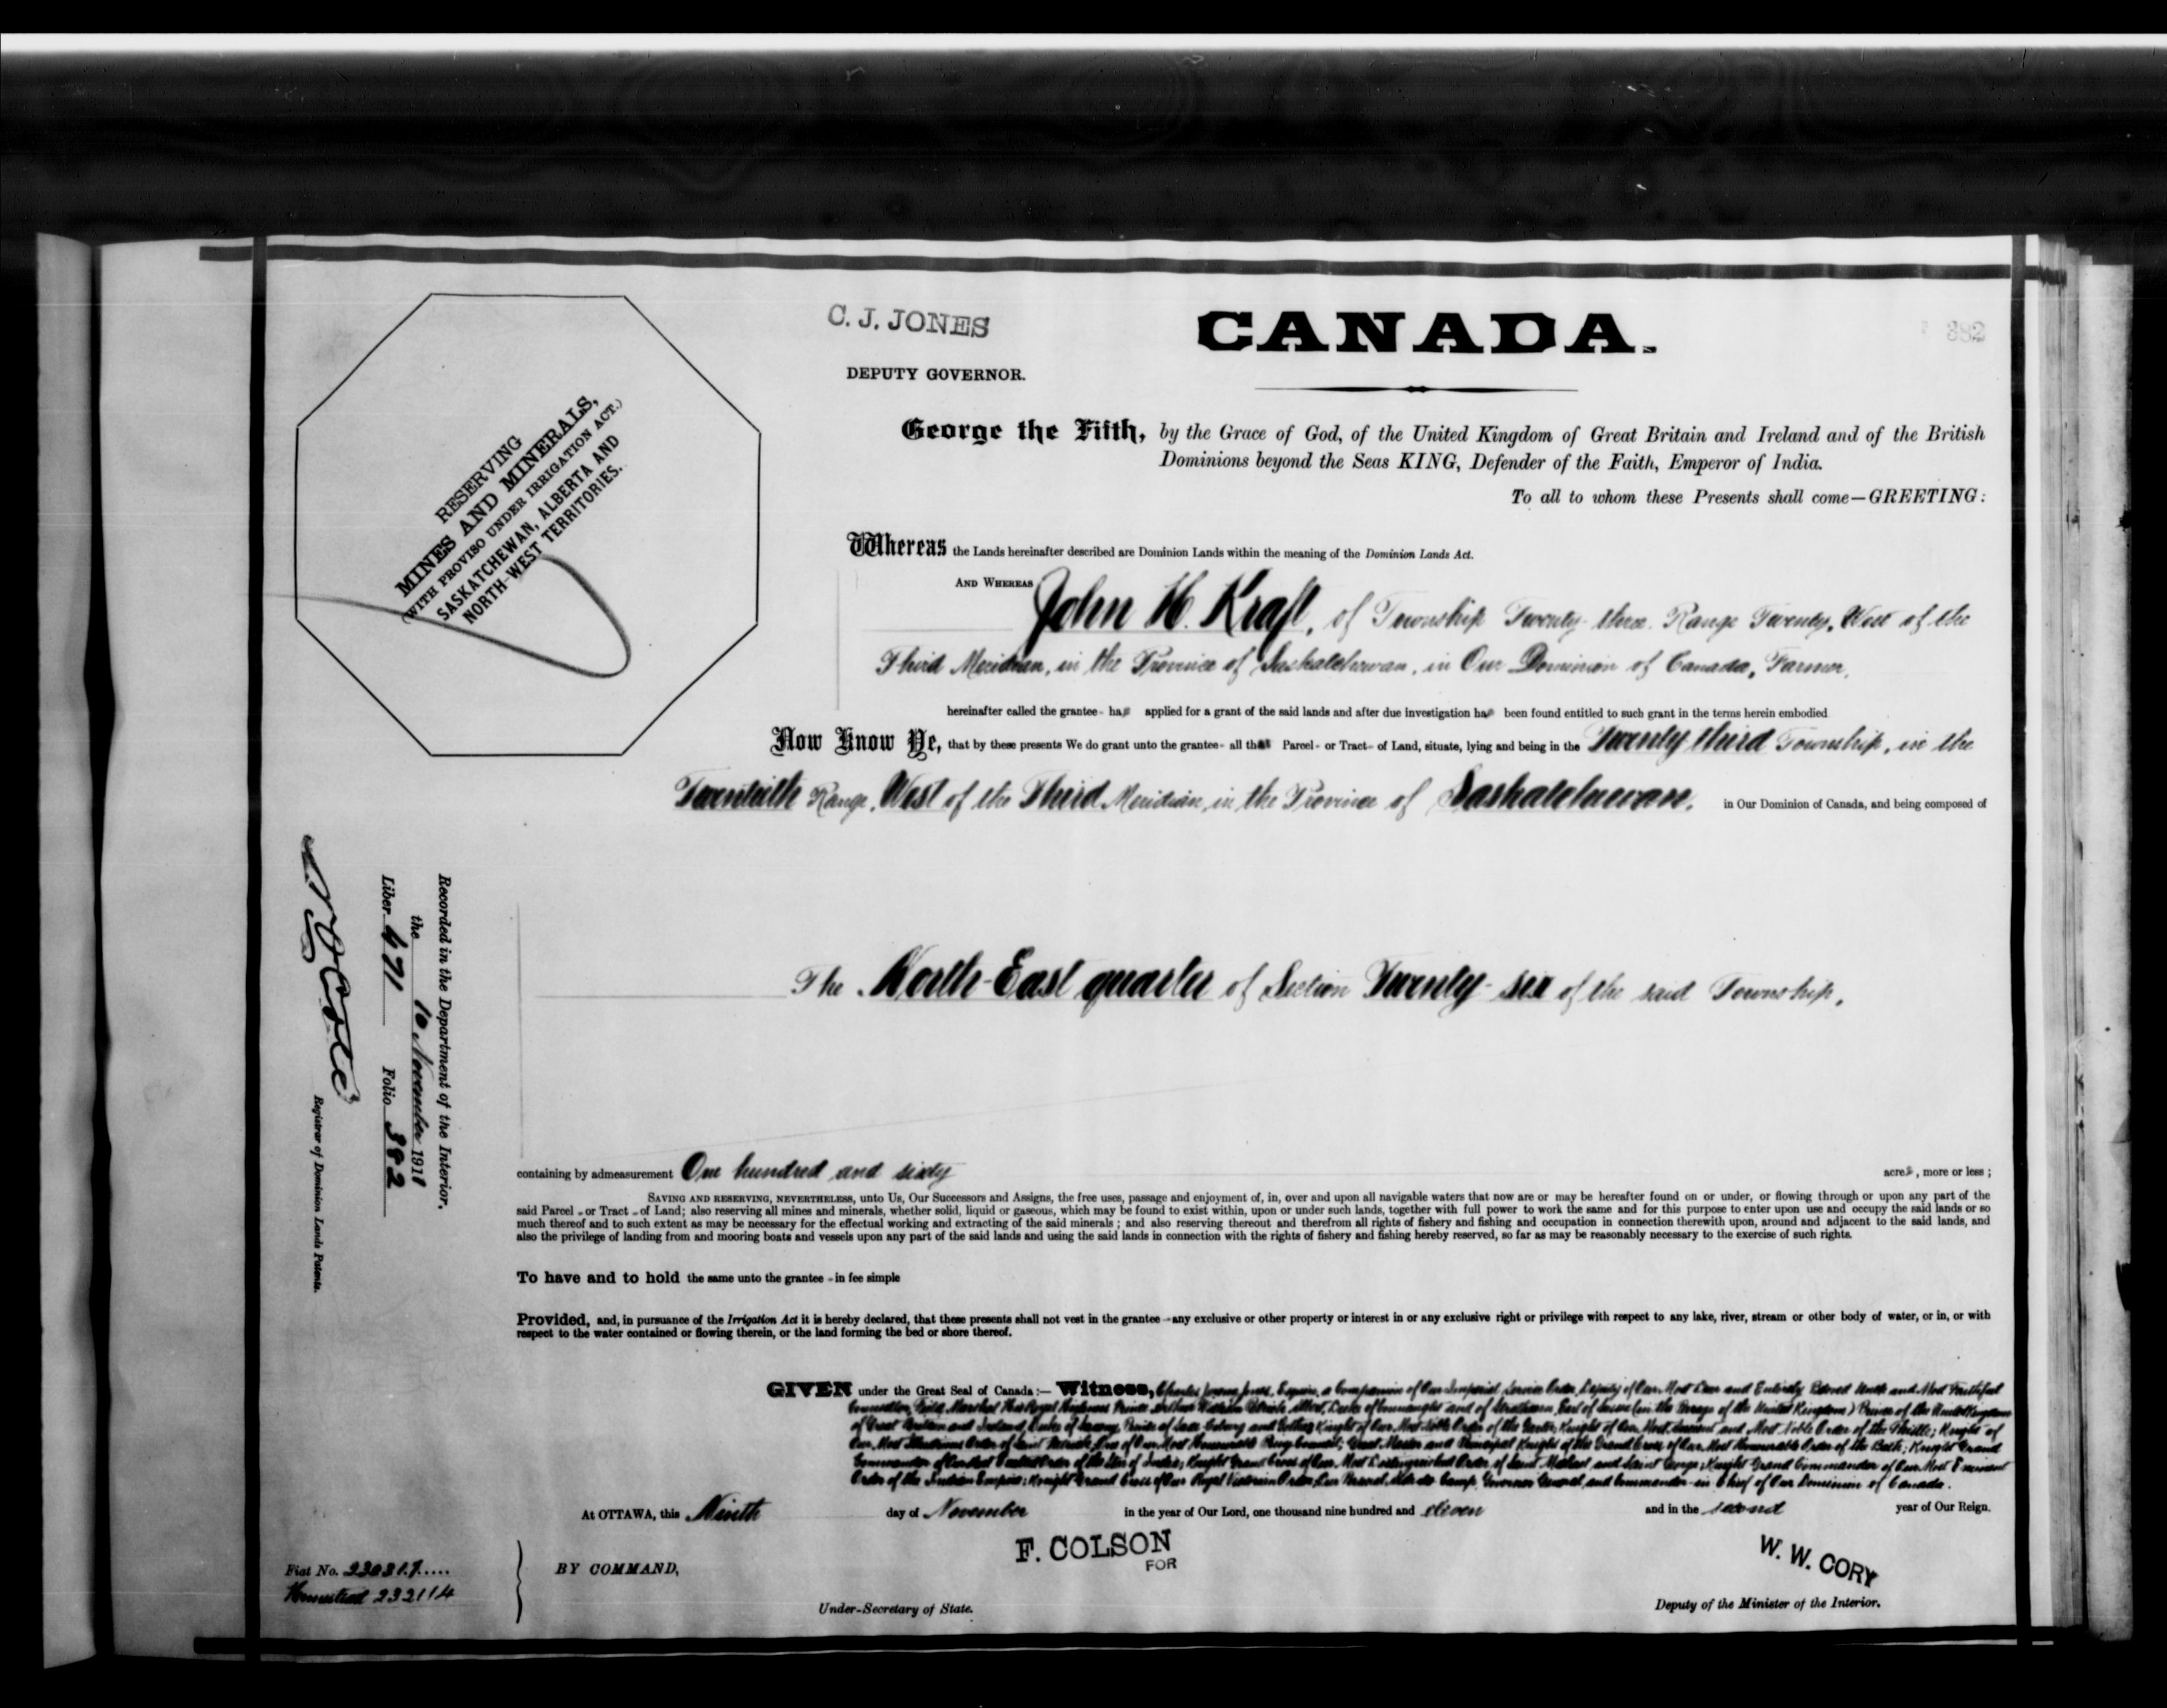 C. J. JONES
DEPUTY GOVERNOR.
CANADA.
382
RESERVING
MINES AND MINERALS,
(WITH PROVISO UNDER IRRIGATION ACT.)
SASKATCHEWAN, ALBERTA AND
NORTH-WEST TERRITORIES.
George the Fifth, by the Grace of God, of the United Kingdom of Great Britain and Ireland and of the British
Dominions beyond the Seas KING, Defender of the Faith, Emperor of India.
To all to whom these Presents shall come—GREETING:
Whereas the Lands hereinafter described are Dominion Lands within the meaning of the Dominion Lands Act.
AND WHEREAS John H. Kraft, of Township Twenty-three, Range Twenty, West of the
Third Meridian, in the Province of Saskatchewan, in Our Dominion of Canada, Farmer,
hereinafter called the grantee- has applied for a grant of the said lands and after due investigation has been found entitled to such grant in the terms herein embodied
Now Know Ye, that by these presents We do grant unto the grantee- all that Parcel- or Tract- of Land, situate, lying and being in the Twenty third Township, in the
Twentieth Range, West of the Third Meridian, in the Province of Saskatchewan, in Our Dominion of Canada, and being composed of
The North-East quarter of Section Twenty-six of the said Township,
Recorded in the Department of the Interior,
the 10 November 1911
Liber 471 Folio 382
Registrar of Dominion Lands Patents.
containing by admeasurement One hundred and sixty acres, more or less;
SAVING AND RESERVING, NEVERTHELESS, unto Us, Our Successors and Assigns, the free uses, passage and enjoyment of, in, over and upon all navigable waters that now are or may be hereafter found on or under, or flowing through or upon any part of the
said Parcel - or Tract - of Land; also reserving all mines and minerals, whether solid, liquid or gaseous, which may be found to exist within, upon or under such lands, together with full power to work the same and for this purpose to enter upon use and occupy the said lands or so
much thereof and to such extent as may be necessary for the effectual working and extracting of the said minerals; and also reserving thereout and therefrom all rights of fishery and fishing and occupation in connection therewith upon, around and adjacent to the said lands, and
also the privilege of landing from and mooring boats and vessels upon any part of the said lands and using the said lands in connection with the rights of fishery and fishing hereby reserved, so far as may be reasonably necessary to the exercise of such rights.
To have and to hold the same unto the grantee - in fee simple
Provided, and, in pursuance of the Irrigation Act it is hereby declared, that these presents shall not vest in the grantee - any exclusive or other property or interest in or any exclusive right or privilege with respect to any lake, river, stream or other body of water, or in, or with
respect to the water contained or flowing therein, or the land forming the bed or shore thereof.
GIVEN under the Great Seal of Canada:— Witness, Charles Jones, Esquire, a Companion of Our Imperial Service Order, Deputy of Our Most Dear and Entirely Beloved Uncle and Most Faithful
Counsellor, Field Marshal His Royal Highness Prince Arthur William Patrick Albert, Duke of Connaught and of Strathearn, Earl of Sussex (in the Peerage of the United Kingdom) Prince of the United Kingdom
of Great Britain and Ireland, Duke of Saxony, Prince of Saxe-Coburg and Gotha; Knight of Our Most Noble Order of the Garter; Knight of Our Most Ancient and Most Noble Order of the Thistle; Knight of
Our Most Illustrious Order of Saint Patrick; One of Our Most Honourable Privy Council; Great Master and Principal Knight of the Grand Cross of Our Most Honourable Order of the Bath; Knight Grand
Commander of Our Most Exalted Order of the Star of India; Knight Grand Cross of Our Most Distinguished Order of Saint Michael and Saint George; Knight Grand Commander of Our Most Eminent
Order of the Indian Empire; Knight Grand Cross of Our Royal Victorian Order; Our Personal Aide-de-Camp, Governor General and Commander-in-Chief of Our Dominion of Canada.
At OTTAWA, this Ninth day of November in the year of Our Lord, one thousand nine hundred and eleven and in the second year of Our Reign.
Fiat No.
Homestead 232114
BY COMMAND,
F. COLSON
FOR
Under-Secretary of State.
W. W. CORY
Deputy of the Minister of the Interior.